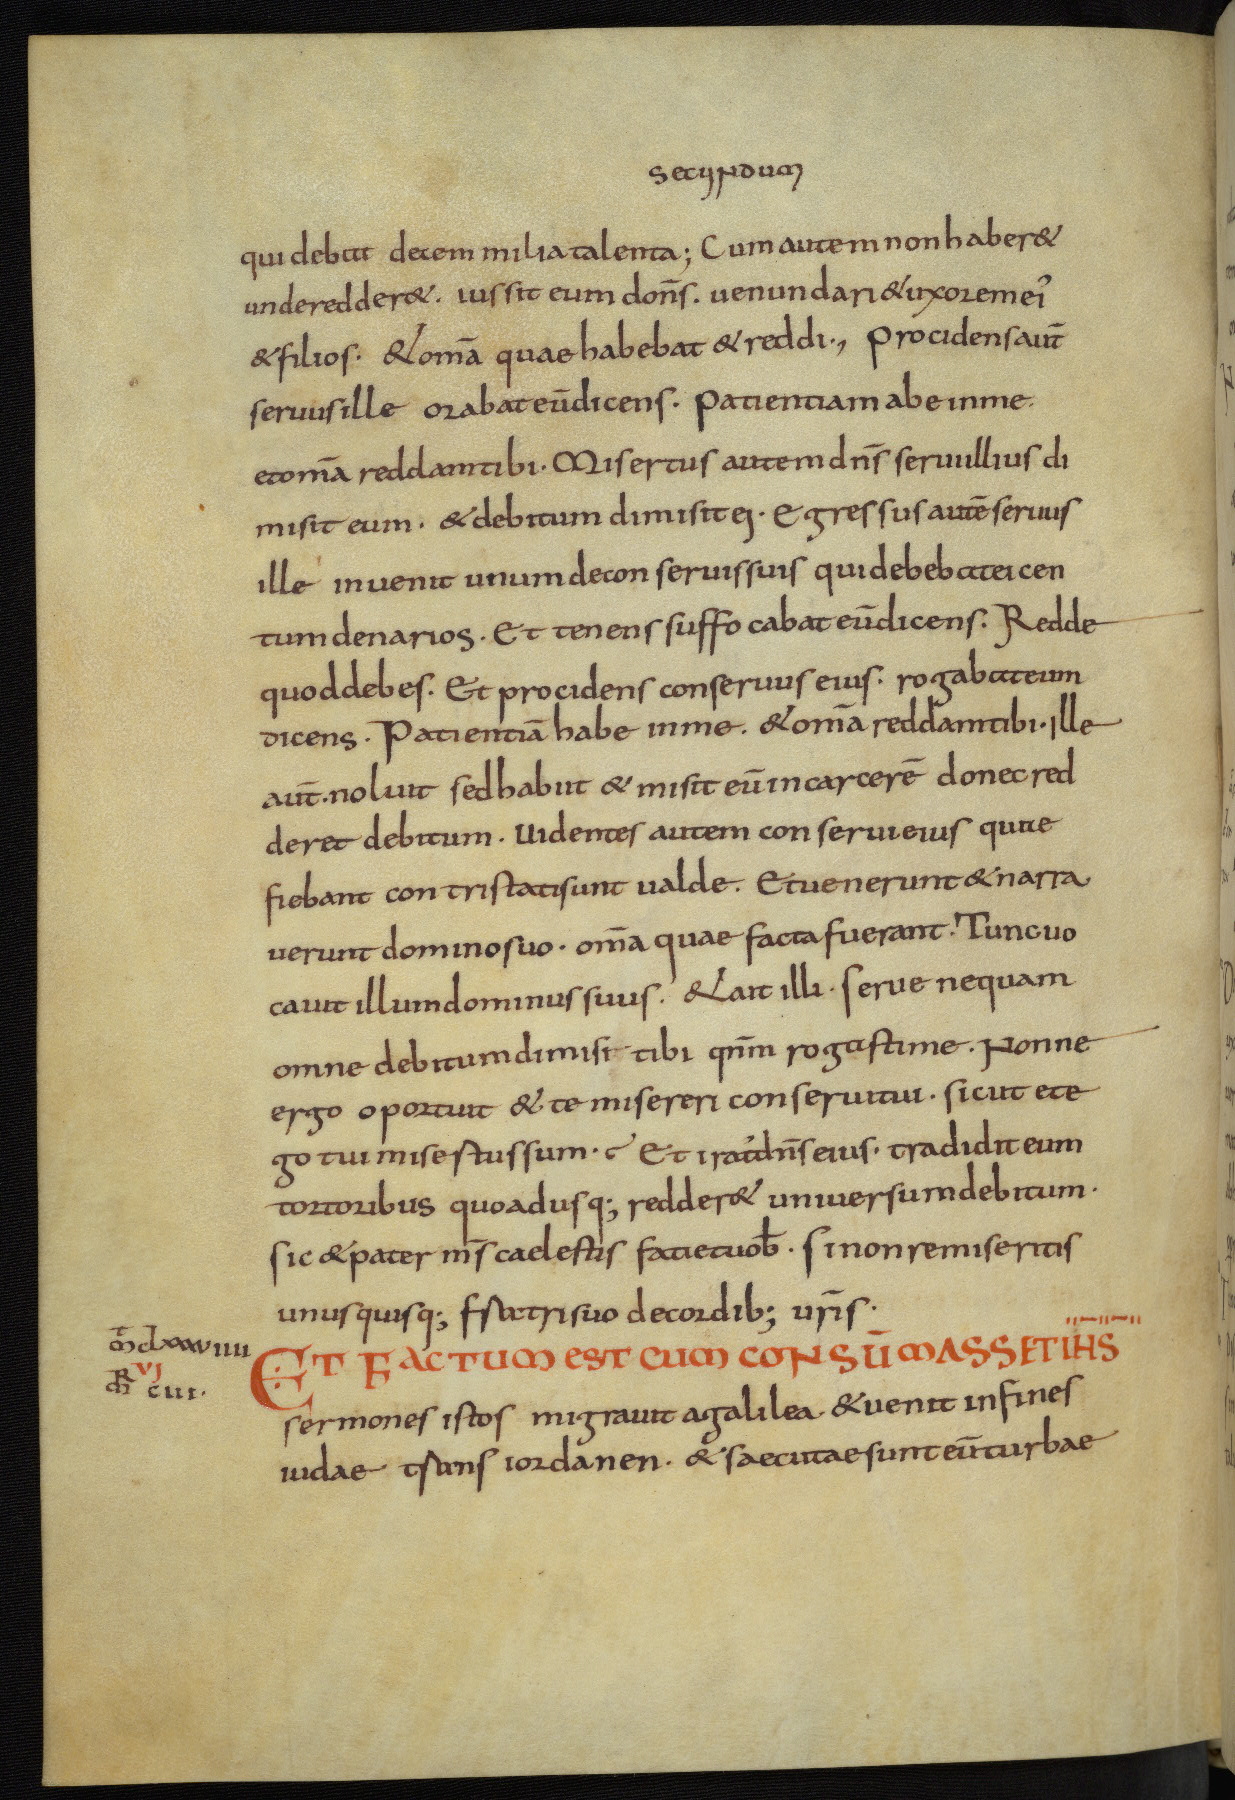 secundum
qui debut decem milia talenta; Cum autem non haber&
unde redder&. iussit eum dom̄s. uenundari & uxorem ei᾽
& filios. & om̄a quae habebat & reddi., Procidens aut̄
seruus ille orabat eū dicens. Patientiam abe in me.
et om̄a reddam tibi. Misertus autem dn̄s serui illius di
misit eum. & debitum dimisit ei. Egressus autē seruus
ille inuenit unum de conseruis suis qui debebat ei cen
tum denarios. Et tenens suffocabat eū dicens. Redde
quod debes. Et procidens conseruus eius. rogabat eum
dicens. Patientiā habe in me. & om̄a reddam tibi. ille
aut̄. noluit sed habiit & misit eū in carcerē donec red
deret debitum. Uidentes autem conserui eius quae
fiebant contristati sunt ualde. Et uenerunt & narra
uerunt domino suo. om̄a quae facta fuerant. Tunc uo
cauit illum dominus suus. & ait illi. serue nequam
omne debitum dimisi tibi qn̄m rogasti me. Nonne
ergo oportuit & te misereri conserui tui. sicut et e
go tui misertus sum. Et irat᾽ dn̄s eius. tradidit eum
tortoribus quoadusq; redder& uniuersum debitum.
sic & pater m̄s caelestis faciet uob̄. si non remiseritis
unusquisq; fratri suo de cordib; ur̄is.
m̄ clxxxuiiii
R̄ VI
m̄ cui.
ET FACTUM EST CUM CONSŪMASSET IH̄S
sermones istos migrauit a galilea. & uenit in fines
iudae trans iordanen. & saecutae sunt eū turbae